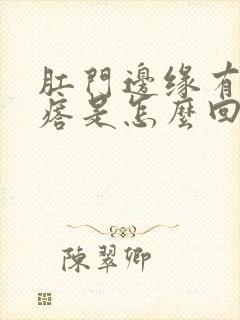 肛門邊缘有
痞是怎麼回
陳翠卿